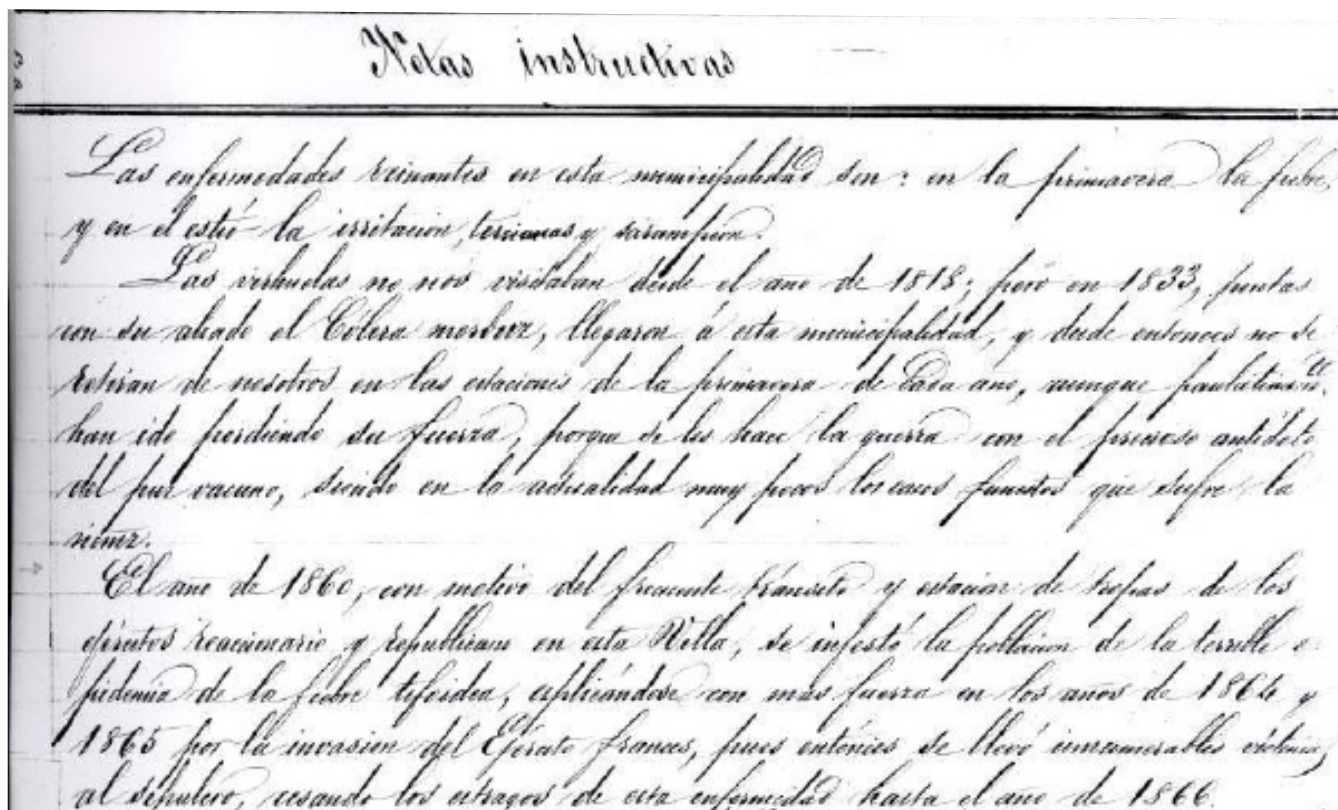 Notas instructivas
Las enfermedades reinantes en esta municipalidad son: en la primavera la fiebre,
y en el estío la irritacion, tercianas y sarampion.
Las virhuelas no nos visitaban desde el año de 1818; pero en 1833, juntas
con su aliado el Cólera morbus, llegaron á esta municipalidad, y desde entonces no se
retiran de nosotros en las estaciones de la primavera de cada año, aunque paulatinamte.
han ido perdiendo su fuerza, porque se les hace la guerra con el precioso antídoto
del pus vacuno, siendo en la actualidad muy pocos los casos funestos que sufre la
niñez.
El año de 1860, con motivo del frecuente tránsito y estacion de tropas de los
ejércitos reaccionario y republicano en esta Villa, se infestó la poblacion de la terrible e-
pidemia de la fiebre tifoidea, esplicándose con mas fuerza en los años de 1864 y
1865 por la invasion del Ejército frances, pues entónces se llevó innumerables víctimas
al sepulcro, cesando los estragos de esta enfermedad hasta el año de 1866